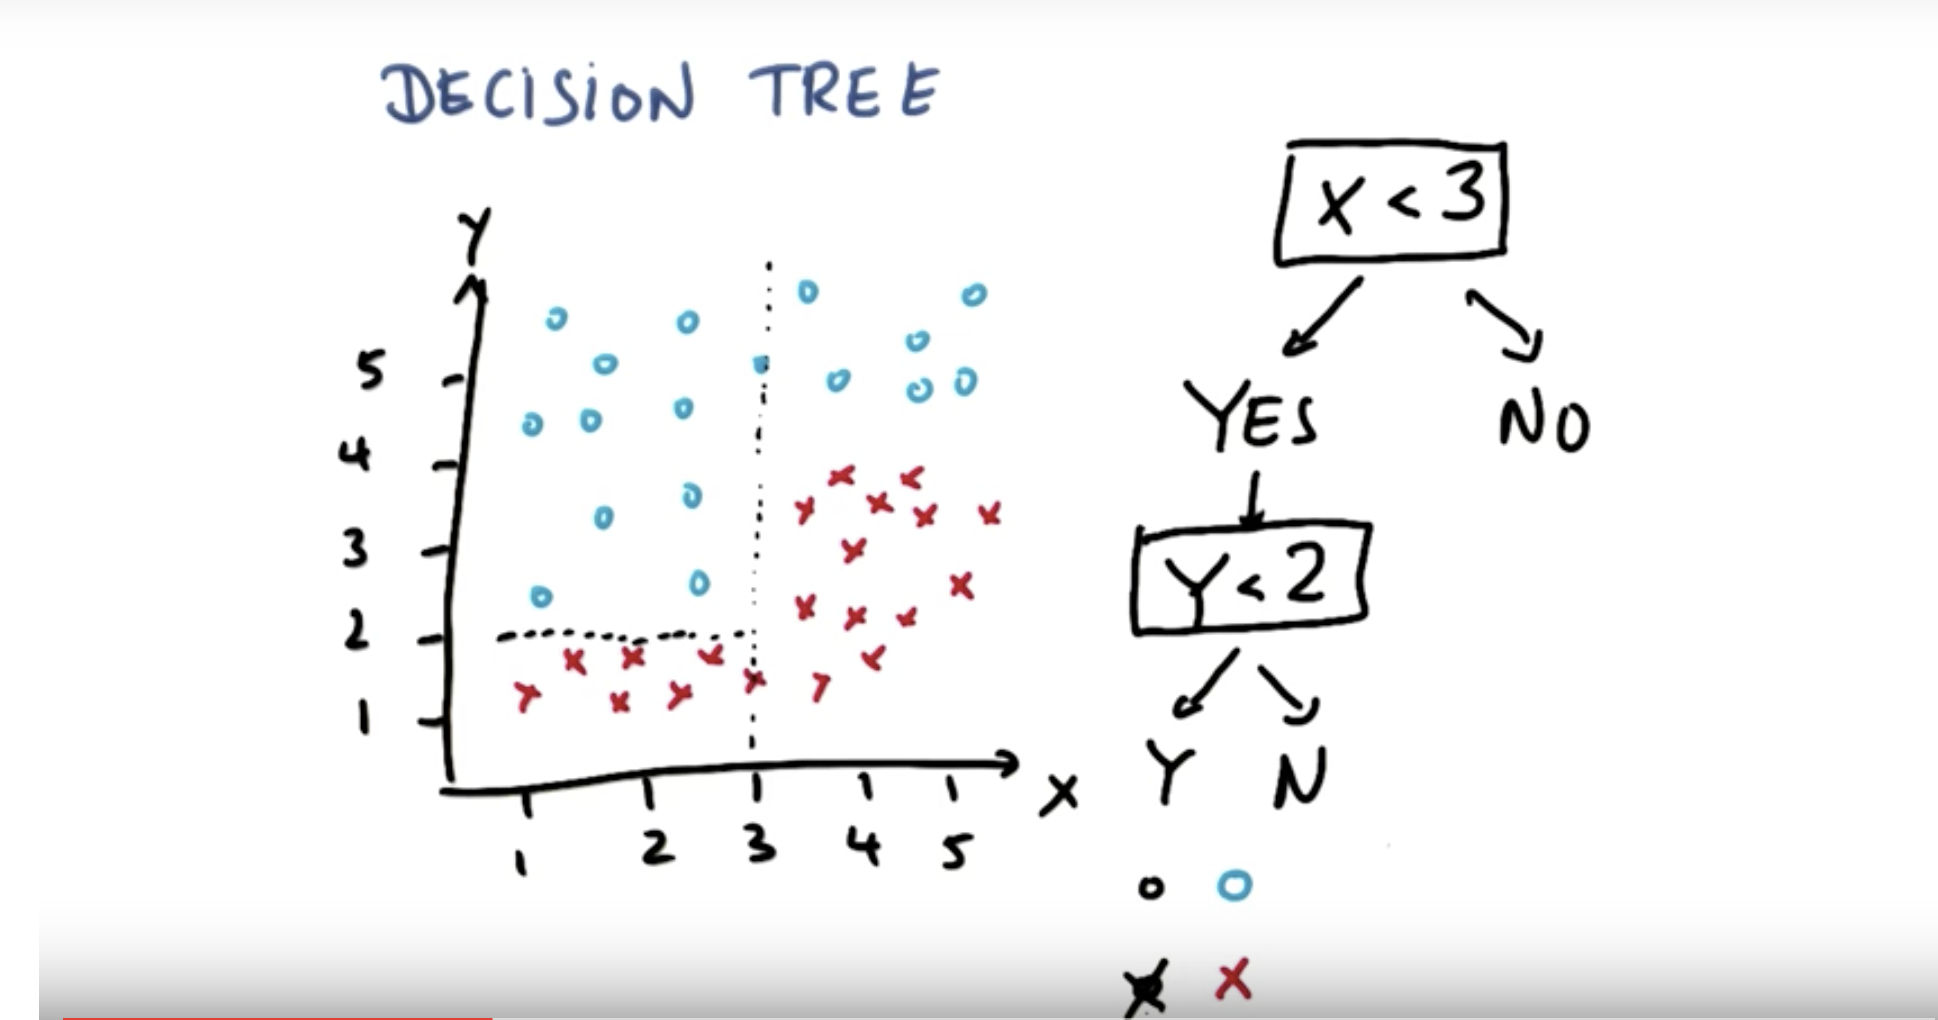 DECISION TREE
Y
5
4
3
2
1
1 2 3 4 5
X
X < 3
YES NO
Y < 2
Y N